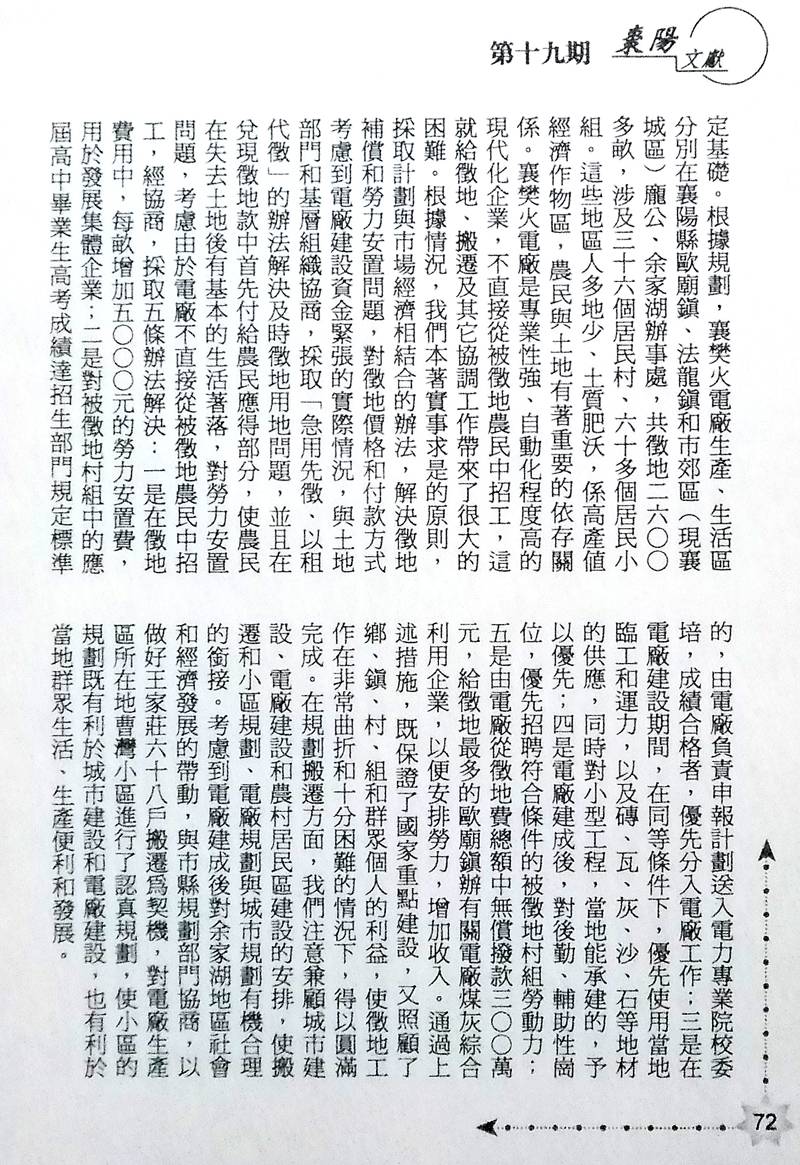 第十九期 棗陽文獻
定基礎。根據規劃，襄樊火電廠生產、生活區
分別在襄陽縣歐廟鎮、法龍鎮和市郊區（現襄
城區）龐公、余家湖辦事處，共徵地二六〇〇
多畝，涉及三十六個居民村、六十多個居民小
組。這些地區人多地少、土質肥沃，係高產值
經濟作物區，農民與土地有著重要的依存關
係。襄樊火電廠是專業性強、自動化程度高的
現代化企業，不直接從被徵地農民中招工，這
就給徵地、搬遷及其它協調工作帶來了很大的
困難。根據情況，我們本著實事求是的原則，
採取計劃與市場經濟相結合的辦法，解決徵地
補償和勞力安置問題，對徵地價格和付款方式
考慮到電廠建設資金緊張的實際情況，與土地
部門和基層組織協商，採取「急用先徵、以租
代徵」的辦法解決及時徵地用地問題，並且在
兌現徵地款中首先付給農民應得部分，使農民
在失去土地後有基本的生活著落，對勞力安置
問題，考慮由於電廠不直接從被徵地農民中招
工，經協商，採取五條辦法解決：一是在徵地
費用中，每畝增加五〇〇〇元的勞力安置費，
用於發展集體企業；二是對被徵地村組中的應
屆高中畢業生高考成績達招生部門規定標準
的，由電廠負責申報計劃送入電力專業院校委
培，成績合格者，優先分入電廠工作；三是在
電廠建設期間，在同等條件下，優先使用當地
臨工和運力，以及磚、瓦、灰、沙、石等地材
的供應，同時對小型工程，當地能承建的，予
以優先；四是電廠建成後，對後勤、輔助性崗
位，優先招聘符合條件的被徵地村組勞動力；
五是由電廠從徵地費總額中無償撥款三〇〇萬
元，給徵地最多的歐廟鎮辦有關電廠煤灰綜合
利用企業，以便安排勞力，增加收入。通過上
述措施，既保證了國家重點建設，又照顧了
鄉、鎮、村、組和群眾個人的利益，使徵地工
作在非常曲折和十分困難的情況下，得以圓滿
完成。在規劃搬遷方面，我們注意兼顧城市建
設、電廠建設和農村居民區建設的安排，使搬
遷和小區規劃、電廠規劃與城市規劃有機合理
的銜接。考慮到電廠建成後對余家湖地區社會
和經濟發展的帶動，與市縣規劃部門協商，以
做好王家莊六十八戶搬遷為契機，對電廠生產
區所在地曹灣小區進行了認真規劃，使小區的
規劃既有利於城市建設和電廠建設，也有利於
當地群眾生活、生產便利和發展。
72